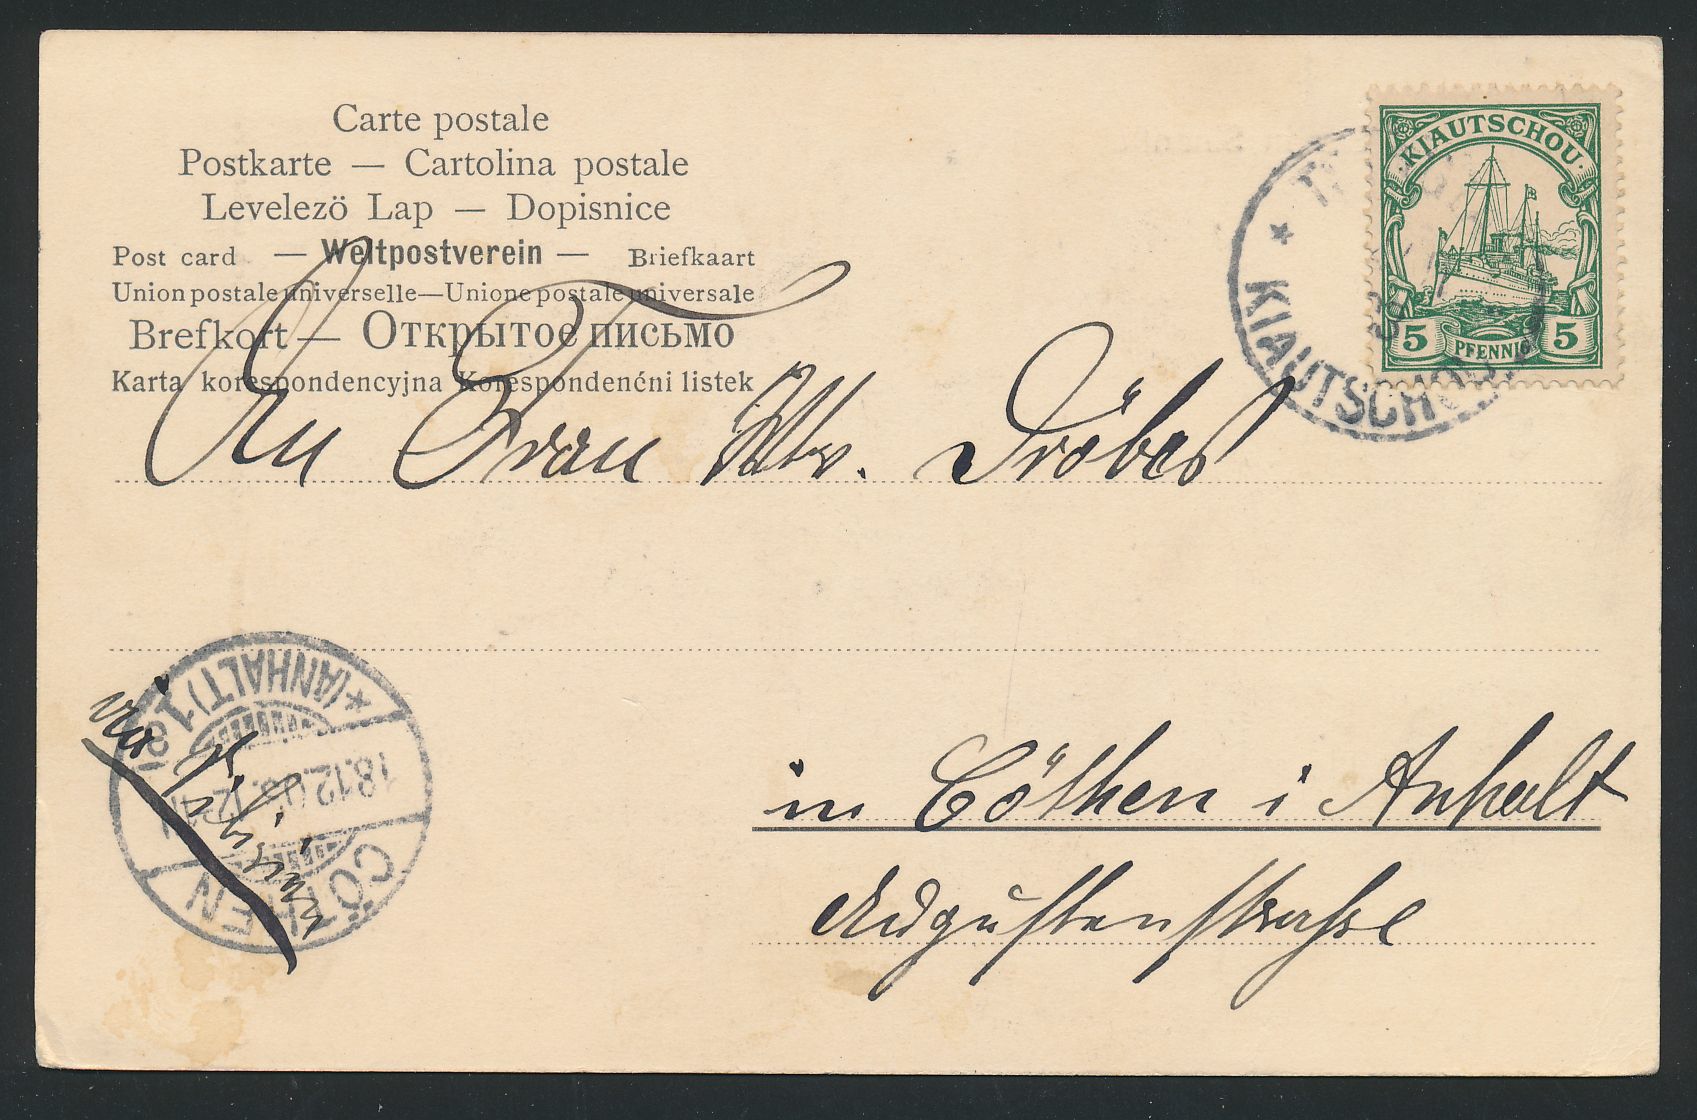 Carte postale
Postkarte — Cartolina postale
Levelezö Lap — Dopisnice
Post card — Weltpostverein — Briefkaart
Union postale universelle—Unione postale universale
Brefkort — Открытое письмо
Karta korespondencyjna Korespondenćni listek
KIAUTSCHOU
5 PFENNIG 5
KIAUTSCHOU
An Frau Ww. Dröbes
in Cöthen i Anhalt
Augustenstrasse
via
CÖTHEN
(ANHALT) 1
18.12.